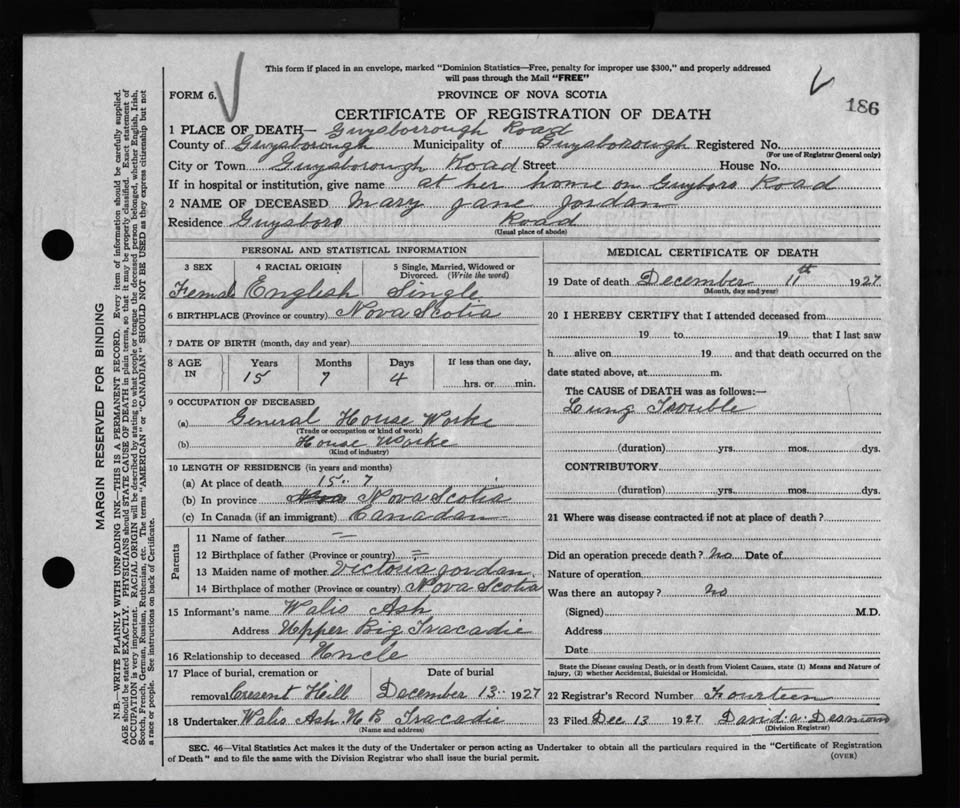 This form if placed in an envelope, marked "Dominion Statistics—Free, penalty for improper use $300," and properly addressed
will pass through the Mail "FREE"
FORM 6.
PROVINCE OF NOVA SCOTIA
186
CERTIFICATE OF REGISTRATION OF DEATH
1 PLACE OF DEATH— Guysborrough Road
County of Guysborough Municipality of Guysborough Registered No.
(For use of Registrar General only)
City or Town Guysborough Road Street House No.
If in hospital or institution, give name at her home on Guysboro Road
2 NAME OF DECEASED Mary Jane Jordan
Residence Guysboro Road
(Usual place of abode)
PERSONAL AND STATISTICAL INFORMATION
3 SEX 4 RACIAL ORIGIN 5 Single, Married, Widowed or Divorced. (Write the word)
Female English Single
6 BIRTHPLACE (Province or country) Nova Scotia
7 DATE OF BIRTH (month, day and year)
8 AGE IN Years Months Days If less than one day,
15 7 4 hrs. or min.
9 OCCUPATION OF DECEASED
(a) General House Worke
(Trade or occupation or kind of work)
(b) House Worke
(Kind of industry)
10 LENGTH OF RESIDENCE (in years and months)
(a) At place of death 15 7
(b) In province Nova Scotia
(c) In Canada (if an immigrant) Canadan
Parents
11 Name of father =
12 Birthplace of father (Province or country) =
13 Maiden name of mother Victoria Jordan
14 Birthplace of mother (Province or country) Nova Scotia
15 Informant's name Walis Ash
Address Upper Big Tracadie
16 Relationship to deceased Uncle
17 Place of burial, cremation or removal Date of burial
Cresent Heill December 13 1927
18 Undertaker Walis Ash U B Tracadie
(Name and address)
MEDICAL CERTIFICATE OF DEATH
19 Date of death December 11th 1927
(Month, day and year)
20 I HEREBY CERTIFY that I attended deceased from
19 to 19 that I last saw
h alive on 19 and that death occurred on the
date stated above, at m.
The CAUSE of DEATH was as follows:—
Lung Trouble
(duration) yrs. mos. dys.
CONTRIBUTORY
(duration) yrs. mos. dys.
21 Where was disease contracted if not at place of death?
Did an operation precede death? No Date of
Nature of operation
Was there an autopsy? No
(Signed) M.D.
Address
Date
State the Disease causing Death, or in death from Violent Causes, state (1) Means and Nature of
Injury, (2) whether Accidental, Suicidal or Homicidal.
22 Registrar's Record Number Fourteen
23 Filed Dec 13 1927 David. a. Desmond
(Division Registrar)
SEC. 46—Vital Statistics Act makes it the duty of the Undertaker or person acting as Undertaker to obtain all the particulars required in the "Certificate of Registration
of Death" and to file the same with the Division Registrar who shall issue the burial permit.
(OVER)
MARGIN RESERVED FOR BINDING
N.B.—WRITE PLAINLY WITH UNFADING INK—THIS IS A PERMANENT RECORD. Every item of information should be carefully supplied.
AGE should be stated EXACTLY. PHYSICIANS should STATE CAUSE OF DEATH in plain terms, so that it may be properly classified. Exact statement of
OCCUPATION is very important. RACIAL ORIGIN will be described by stating to what people or tongue the deceased person belonged, whether English, Irish,
Scotch, French, German, Russian, Ruthenian, etc. The terms "AMERICAN" or "CANADIAN" SHOULD NOT BE USED as they express citizenship but not
a race or people. See instructions on back of Certificate.